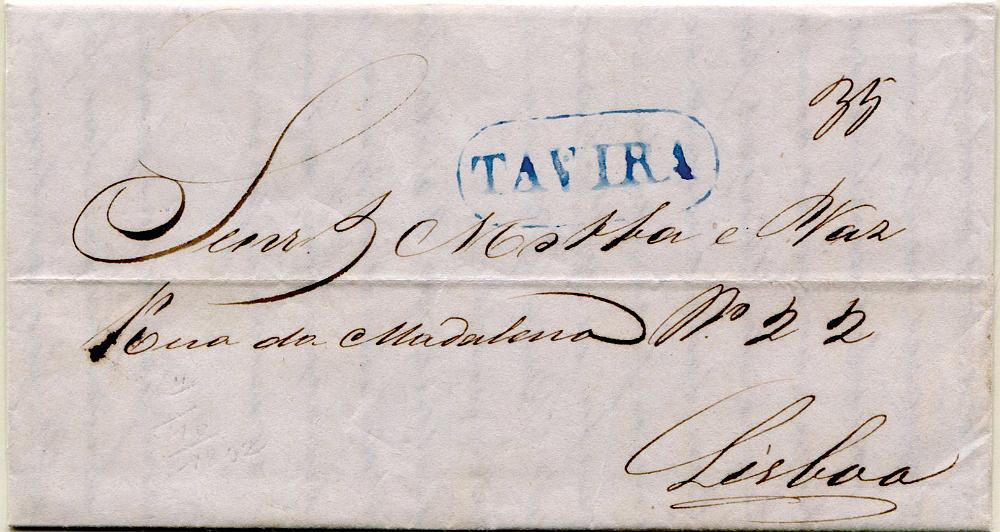 35
TAVIRA
Senrs Motta e Vaz
Rua da Madalena Nº 22
Lisboa